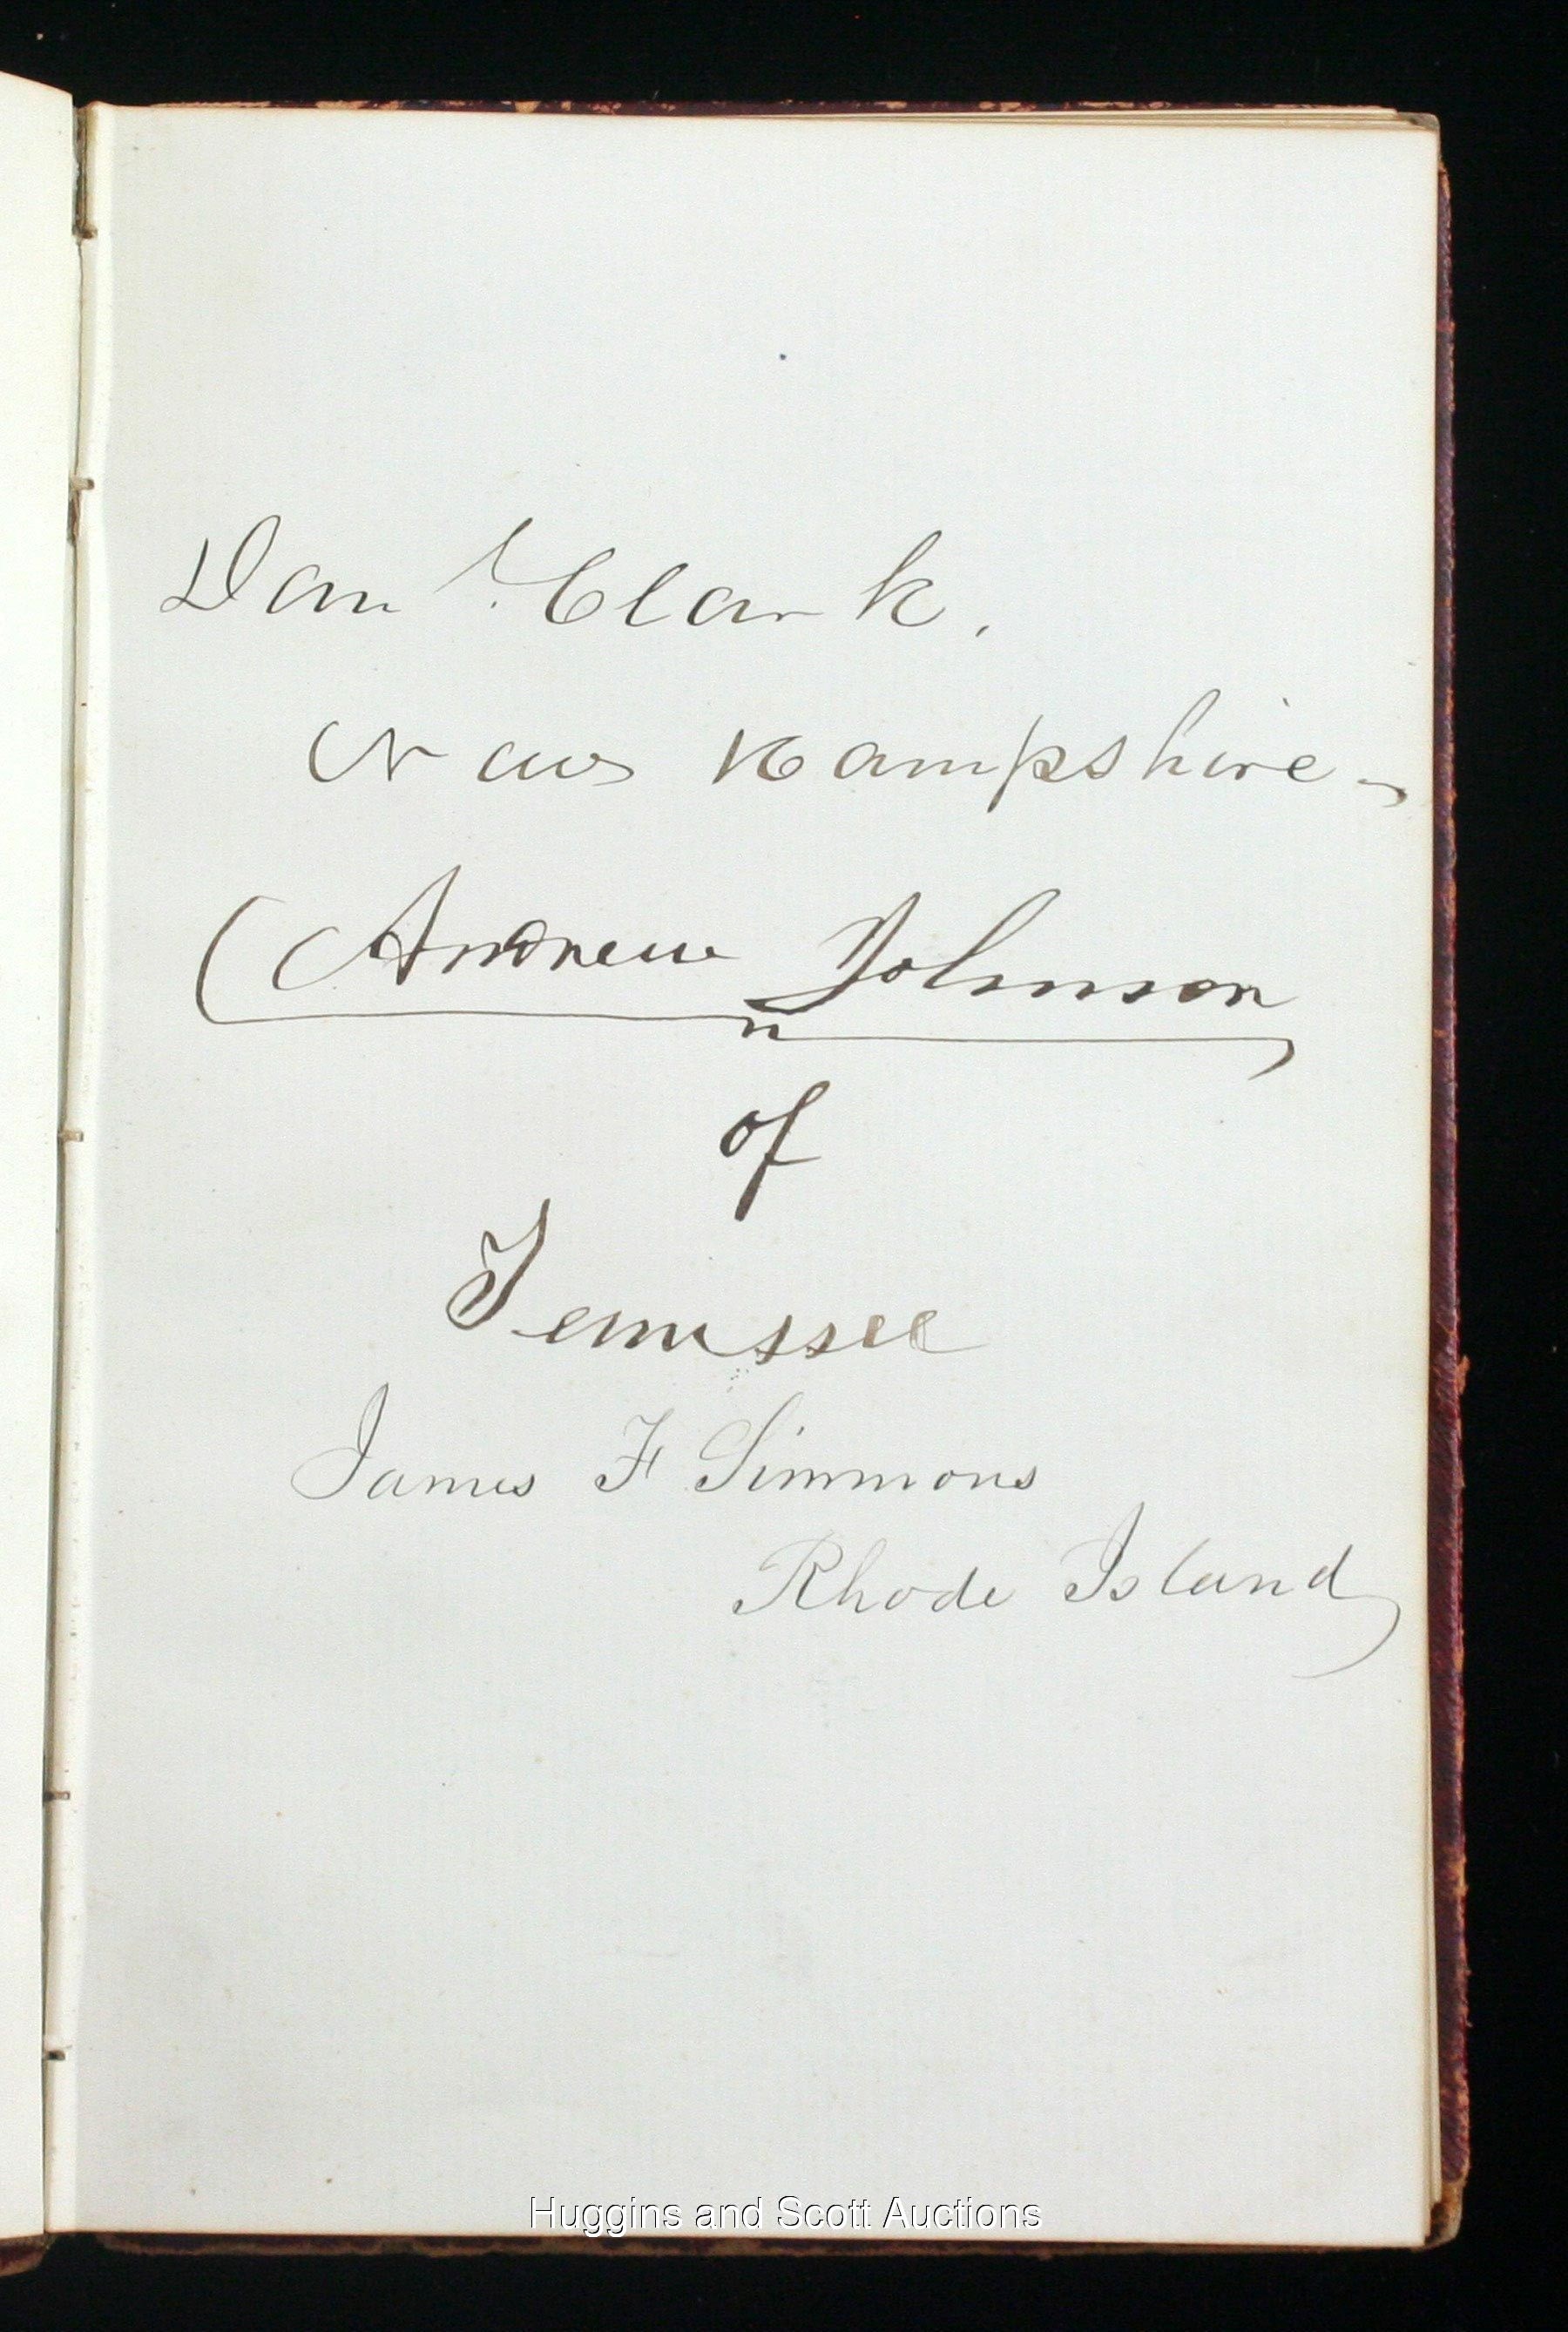 Dan l. Clark.
New Hampshire -
Andrew Johnson
of
Tennssee
James F Simmons
Rhode Island
Huggins and Scott Auctions